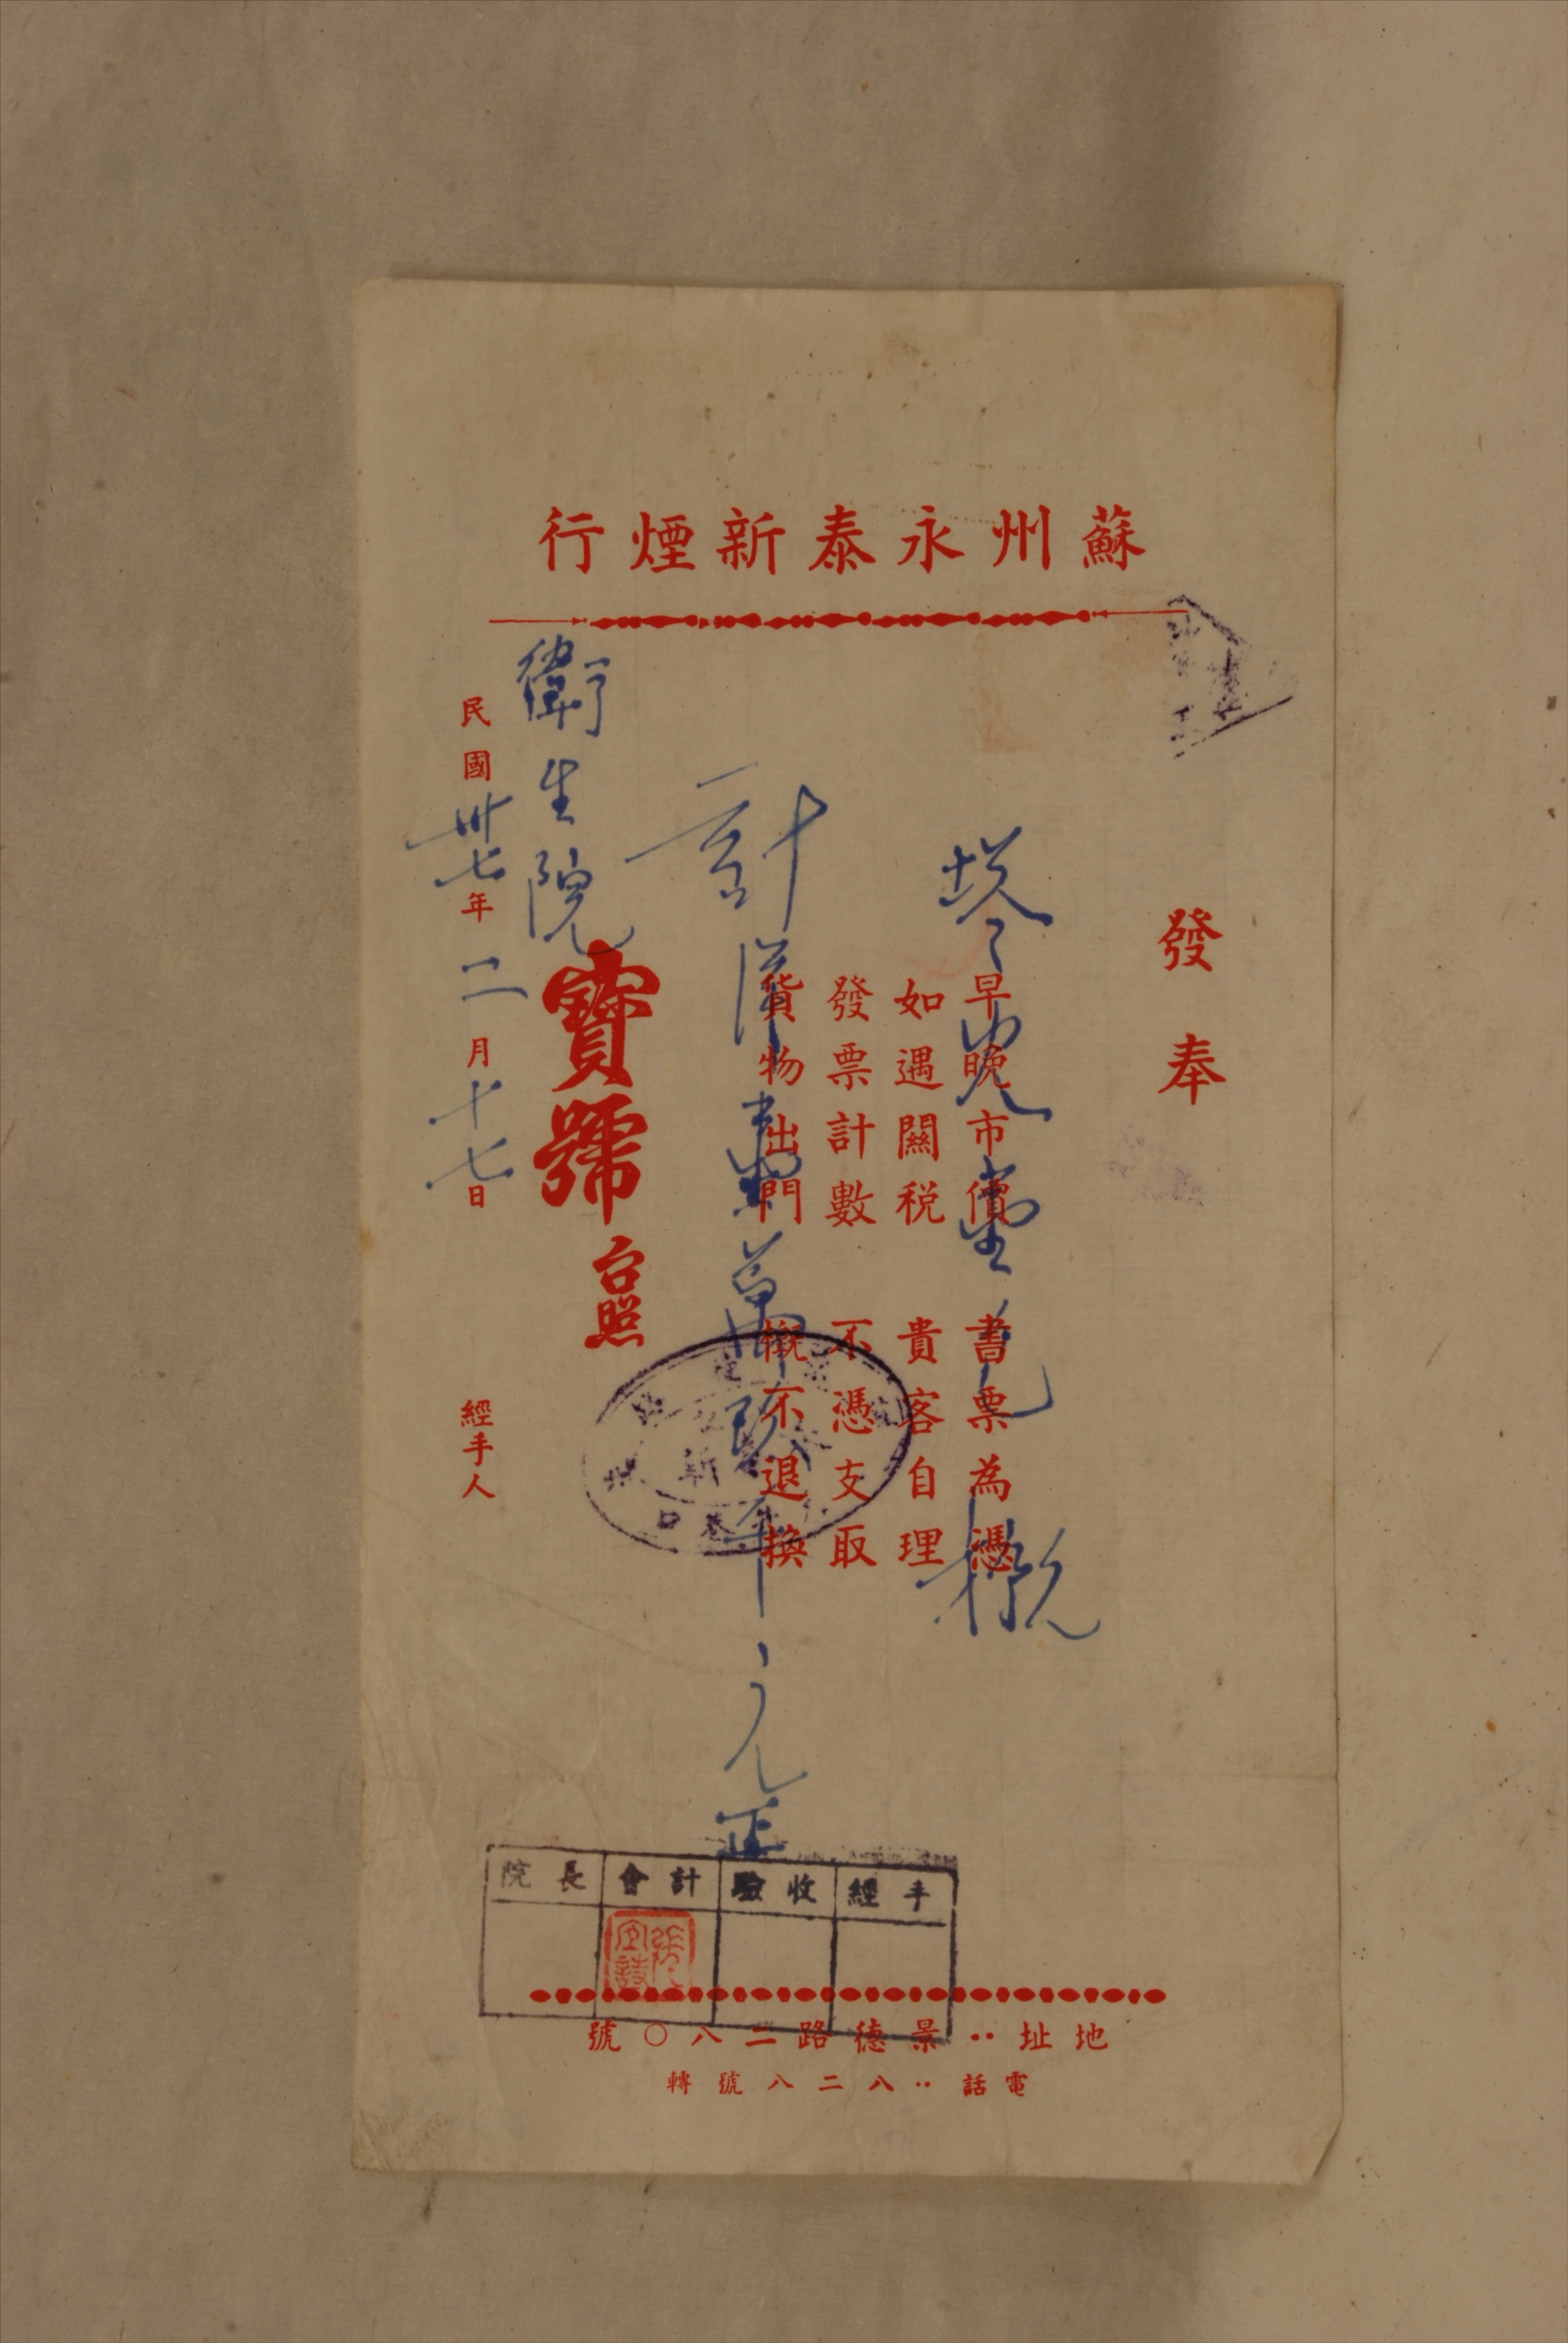 蘇州永泰新煙行
發奉
早晚市價　書票為憑
如遇關税　貴客自理
發票計數　不憑支取
貨物出門　概不退換
計洋　萬　千元正
衛生院
寶號台照
民國卅七年二月十七日
經手人
手經
收驗
計會
長院
地址：景德路二八〇號
電話：八二八號轉